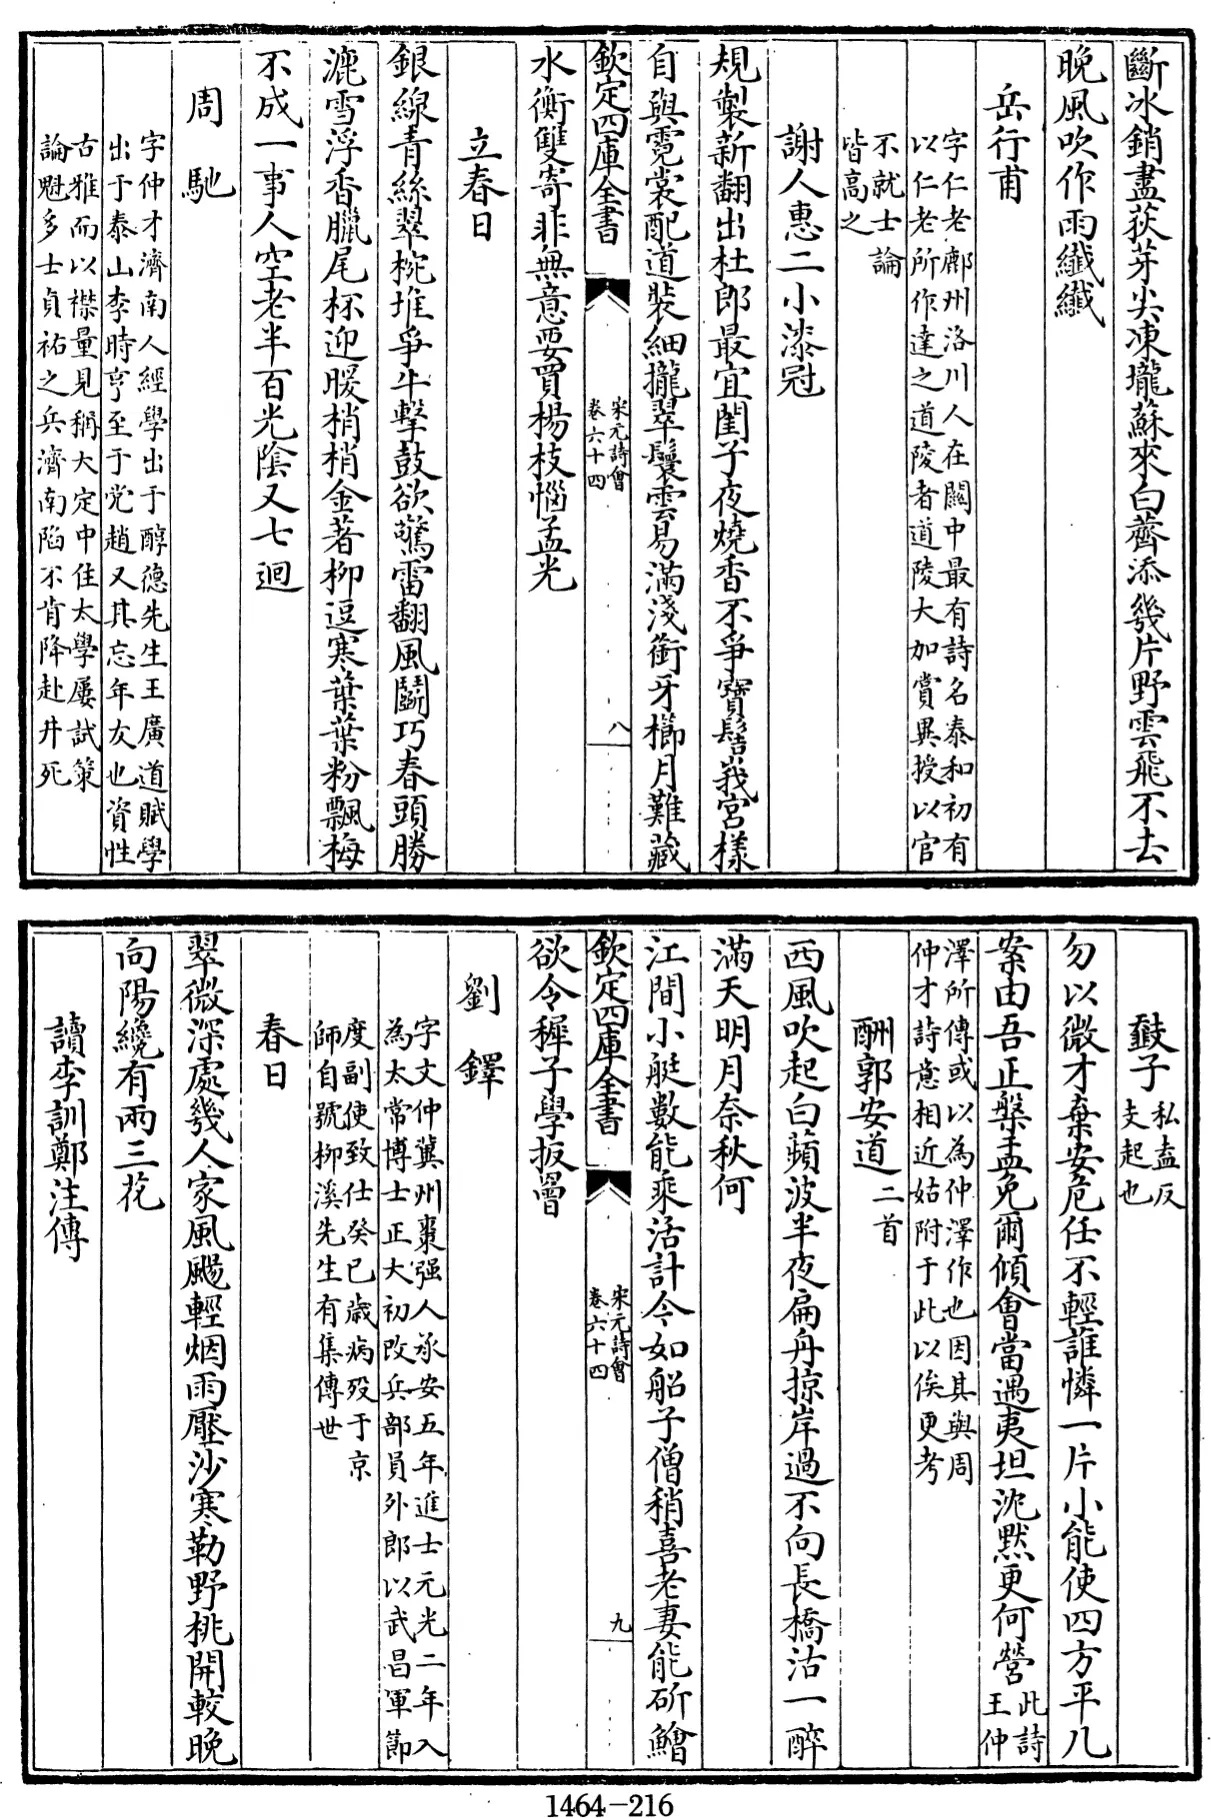 斷冰銷盡荻芽尖凍壠蘇來白薺添幾片野雲飛不去
晚風吹作雨纖纖
岳行甫
字仁老鄜州洛川人在關中最有詩名泰和初有
以仁老所作達之道陵者道陵大加賞異授以官
不就士論
皆高之
謝人惠二小漆冠
規製新翻出杜郎最宜閨子夜燒香不爭寶髻峩宮樣
自與霓裳配道裝細攏翠鬟雲易滿淺銜牙櫛月難藏
欽定四庫全書
宋元詩會
卷六十四
八
水衡雙寄非無意要買楊枝惱孟光
立春日
銀線青絲翠椀堆爭牛擊鼓欲驚雷翻風鬭巧春頭勝
漉雪浮香臘尾杯迎暖梢梢金著柳逗寒葉葉粉飄梅
不成一事人空老半百光陰又七迴
周馳
字仲才濟南人經學出于醇德先生王廣道賦學
出于泰山李時亨至于党趙又其忘年友也資性
古雅而以襟量見稱大定中住太學屢試策
論魁多士貞祐之兵濟南陷不肯降赴井死
敼子
私盍反
攴起也
勿以微才棄安危任不輕誰憐一片小能使四方平几
案由吾正槃盂免爾傾會當遇夷坦沈默更何營
此詩
王仲
澤所傳或以為仲澤作也因其與周
仲才詩意相近姑附于此以俟更考
酬郭安道二首
西風吹起白蘋波半夜扁舟掠岸過不向長橋沽一醉
滿天明月奈秋何
江間小艇數能乘活計今如船子僧稍喜老妻能斫鱠
欽定四庫全書
宋元詩會
卷六十四
九
欲令穉子學扳罾
劉鐸
字文仲冀州棗强人承安五年進士元光二年入
為太常博士正大初改兵部員外郎以武昌軍節
度副使致仕癸巳歲病殁于京
師自號柳溪先生有集傳世
春日
翠微深處幾人家風颺輕烟雨壓沙寒勒野桃開較晚
向陽纔有兩三花
讀李訓鄭注傳
1464-216